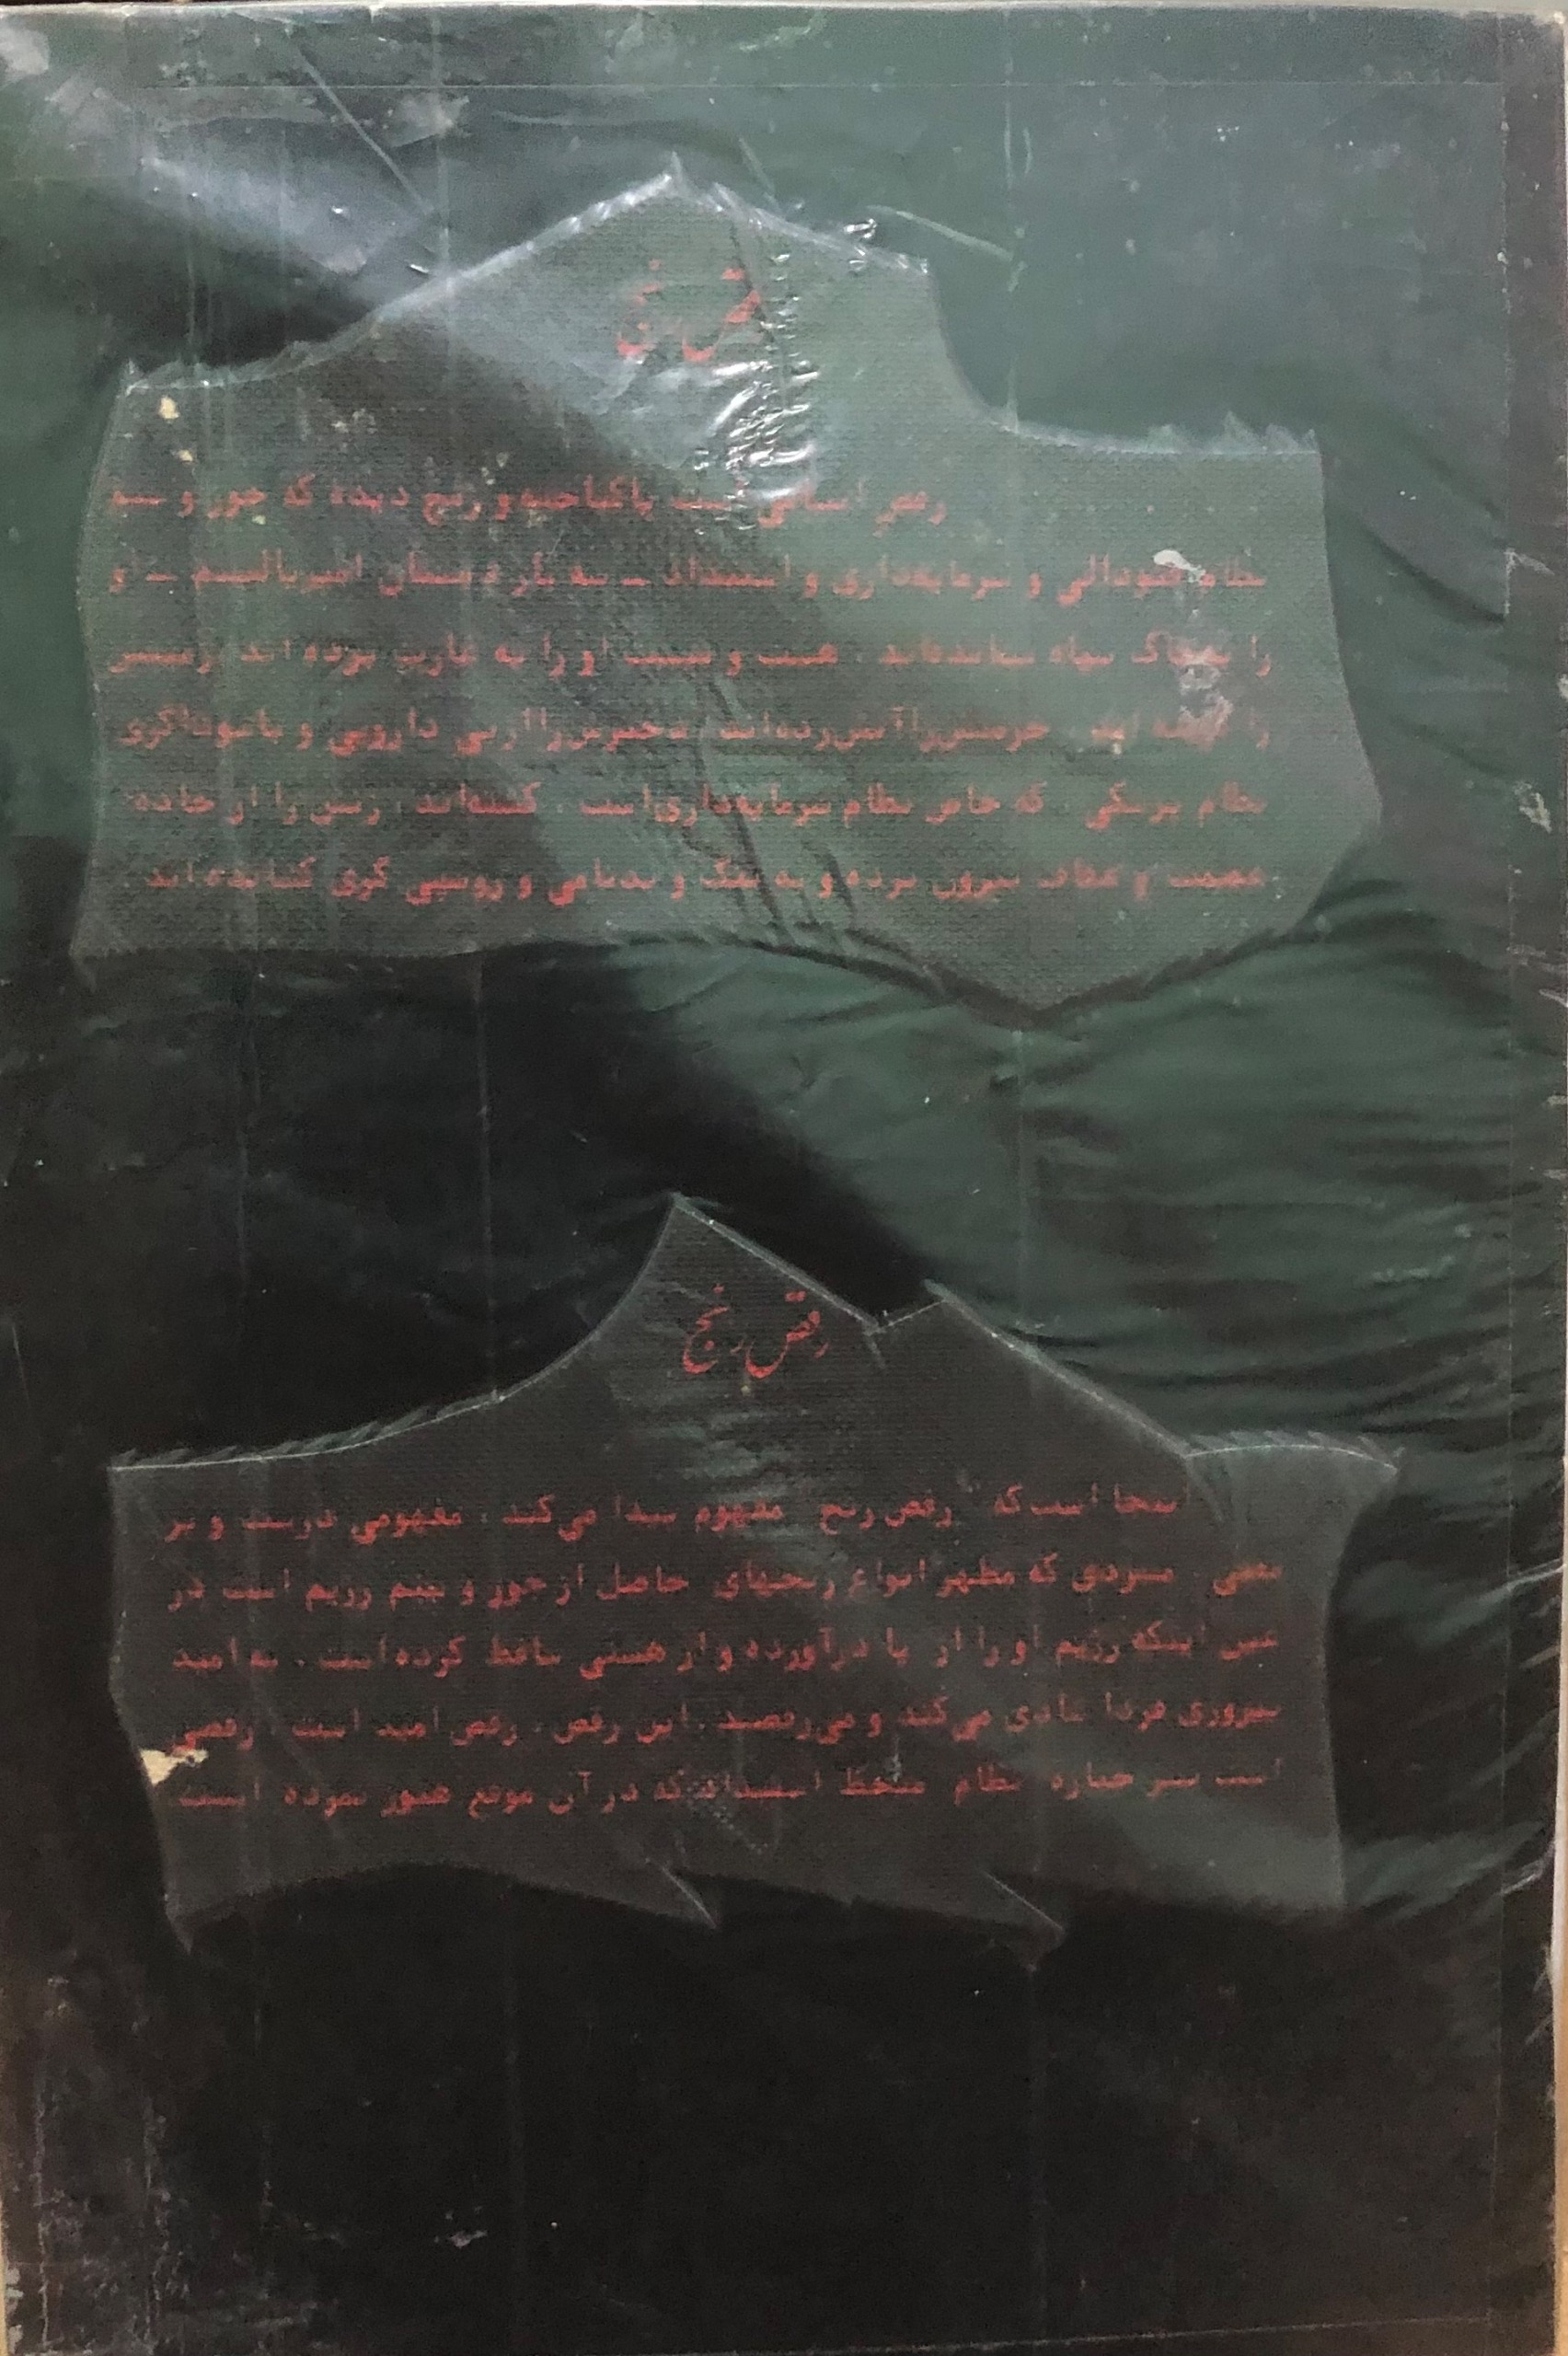 رقص رنج
رقص انسانی است پاکباخته و رنج دیده که جور و ستم
نظام فئودالی و سرمایه‌داری و استبداد ـ به کارگردانی امپریالیسم ـ او
را به خاک سیاه نشانده‌اند . هست و نیست او را به غارت برده اند زمینش
را آتش‌زده‌اند دخترش را از بی دارویی و با سوداگری
نظام پزشکی که خاص نظام سرمایه‌داری است ، کشته‌اند . زنش را از جاده
عصمت و عفاف بیرون برده و به ننگ و بدنامی و روسپی گری کشانده اند .
رقص رنج
اینجا است که "رقص رنج" مفهوم پیدا می‌کند ، مفهومی درست و پر
معنی . مردی که مظهر انواع رنجهای حاصل از جور و ستم رژیم است در
عین اینکه رژیم او را از پا درآورده و از هستی ساقط کرده است ، به امید
پیروزی فردا شادی می‌کند و می‌رقصد . این رقص ، رقص امید است . رقصی
است بر جنازه نظام منحط استبداد که در آن موقع هنوز نمرده است